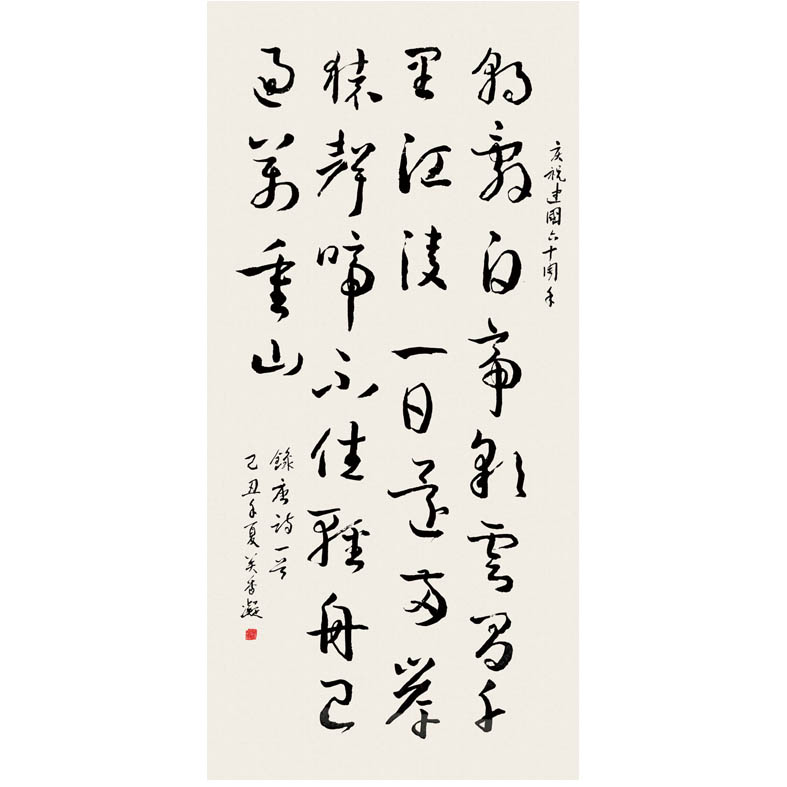 庆祝建國六十周年
朝辭白帝彩雲間千
里江陵一日還兩岸
猿聲啼不住輕舟已
過萬重山
錄唐詩一首
己丑年夏